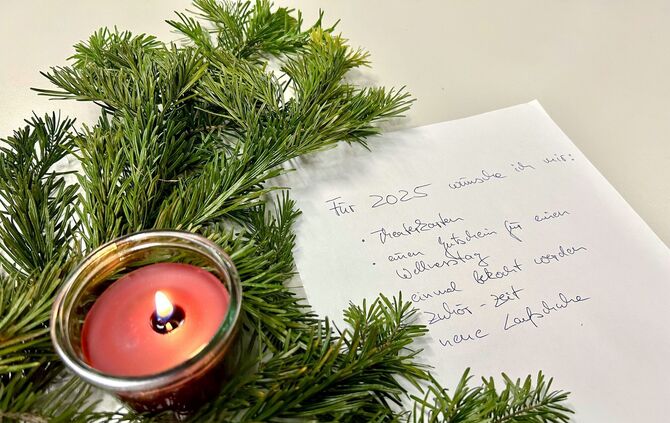 Für 2025 wünsche ich mir:
• Theaterkarten
• einen Gutschein für einen
Wellnesstag
einmal bekocht werden
Zuhör-Zeit
neue Laufschuhe